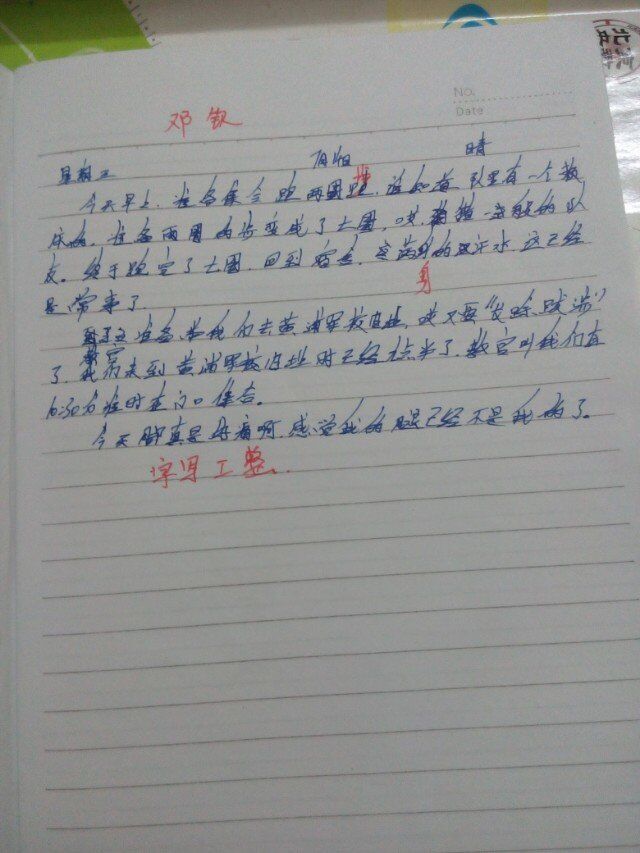 No.
Date
邓钦
星期三 晴
今天早上，准备集合跑两圈操，谁知道队里有一个数
准备两圈的步变成了七圈，哎，一般的队
友。终于跑完了七圈，回到宿舍，满身的汗水，这已经
是常事了。
准备带我们去黄埔军校旧址，哎又要“长途跋涉”
了，我们来到黄埔军校旧址时已经点半了，教官叫我们在
10:30分准时在门口集合。
今天脚真是好痛啊，感觉我的腿已经不是我的了。
字写工整.